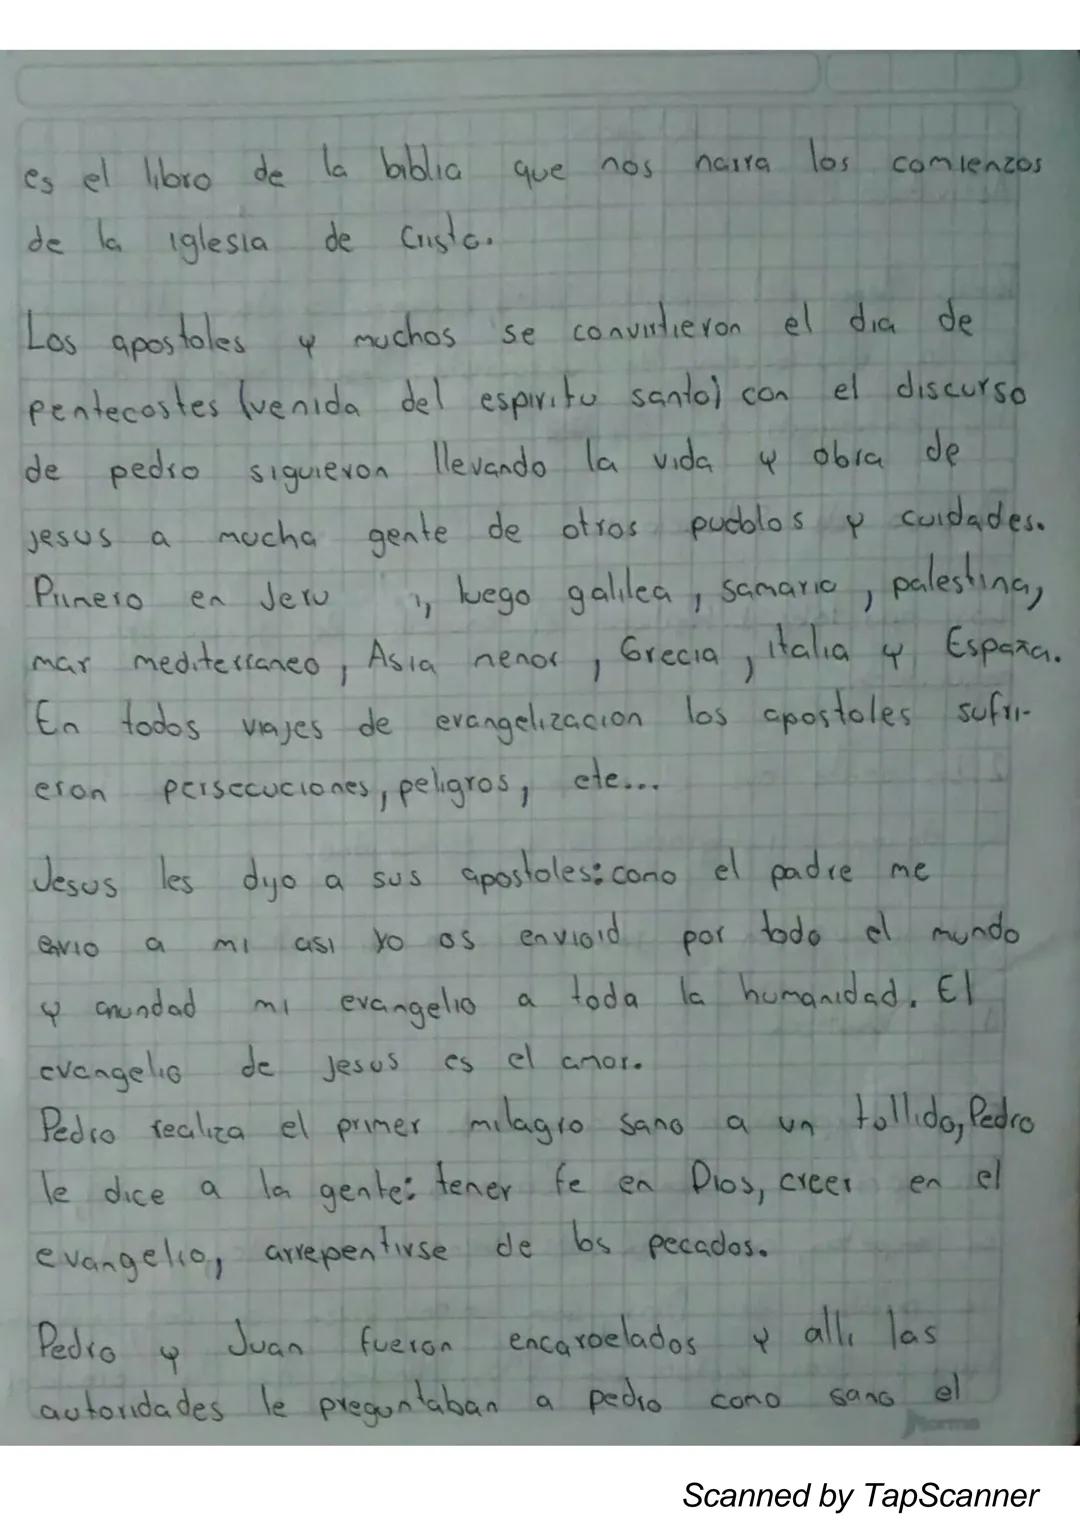 es el libro de la biblia que nos narra los comienzos
de la iglesia de Cristo.
Los apostoles y muchos se convirtieron el dia de
pentecostes (venida del espiritu santo) con el discurso
de pedro siguieron llevando la vida y obra de
jesus a mucha gente de otros pueblos y cuidades.
Primero en Jeru , luego galilea, samaria, palestina,
mar mediterraneo, Asia menor, Grecia, italia y España.
En todos viajes de evangelizacion los apostoles sufri-
eron persecuciones, peligros, etc...
Jesus les dijo a sus apostoles: como el padre me
envio a mi asi yo os envioid por todo el mundo
y anundad mi evangelio a toda la humanidad. El
evangelio de jesus es el amor.
Pedro realiza el primer milagro sano a un tollido, Pedro
le dice a la gente: tener fe en Dios, creer en el
evangelio, arrepentirse de los pecados.
Pedro y Juan fueron encarcelados y alli las
autoridades le preguntaban a pedro como sano el
Norma
Scanned by TapScanner